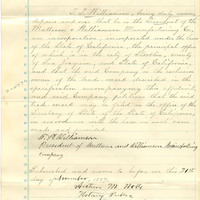 T. P. Williamson, being duly sworn
deposes and says that he is the President of the
Matteson & Williamson Manufacturing Co.
a Corporation, incorporated under the laws
of the State of California, the principal office
of which is in the City of Stockton, County
of San Joaquin, and State of California,
and that the said Company is the
owner of the trade mark described in the
accompanying this affidavit
and said Company
trade mark may be filed in the office of the
Secretary of State of the State of California,
in accordance with the law in such case
made and provided.
T. P. Williamson
President of Matteson and Williamson Manufacturing
Company
Subscribed and sworn to before me this
day November, 1887.
Notary Public